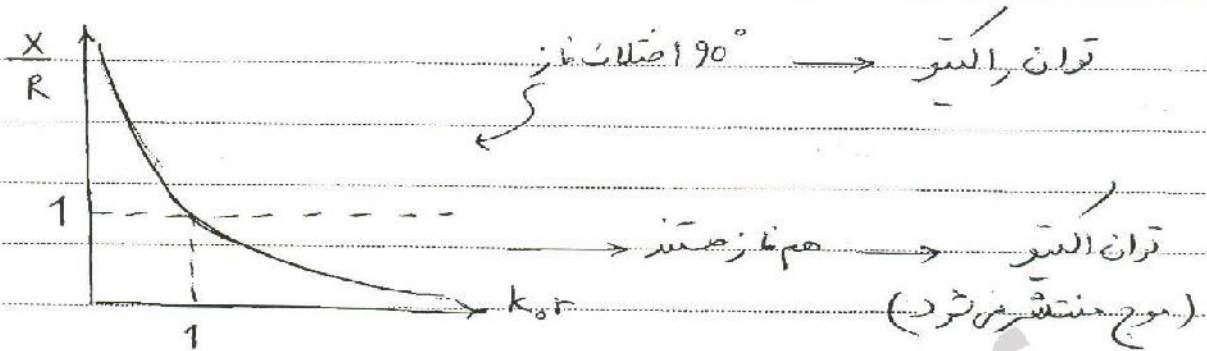 توان راکتیو → 90° اختلاف فاز
X/R
1
توان اکتیو → هم فاز هستند →
(موج منتشر می شود)
k₀r
1